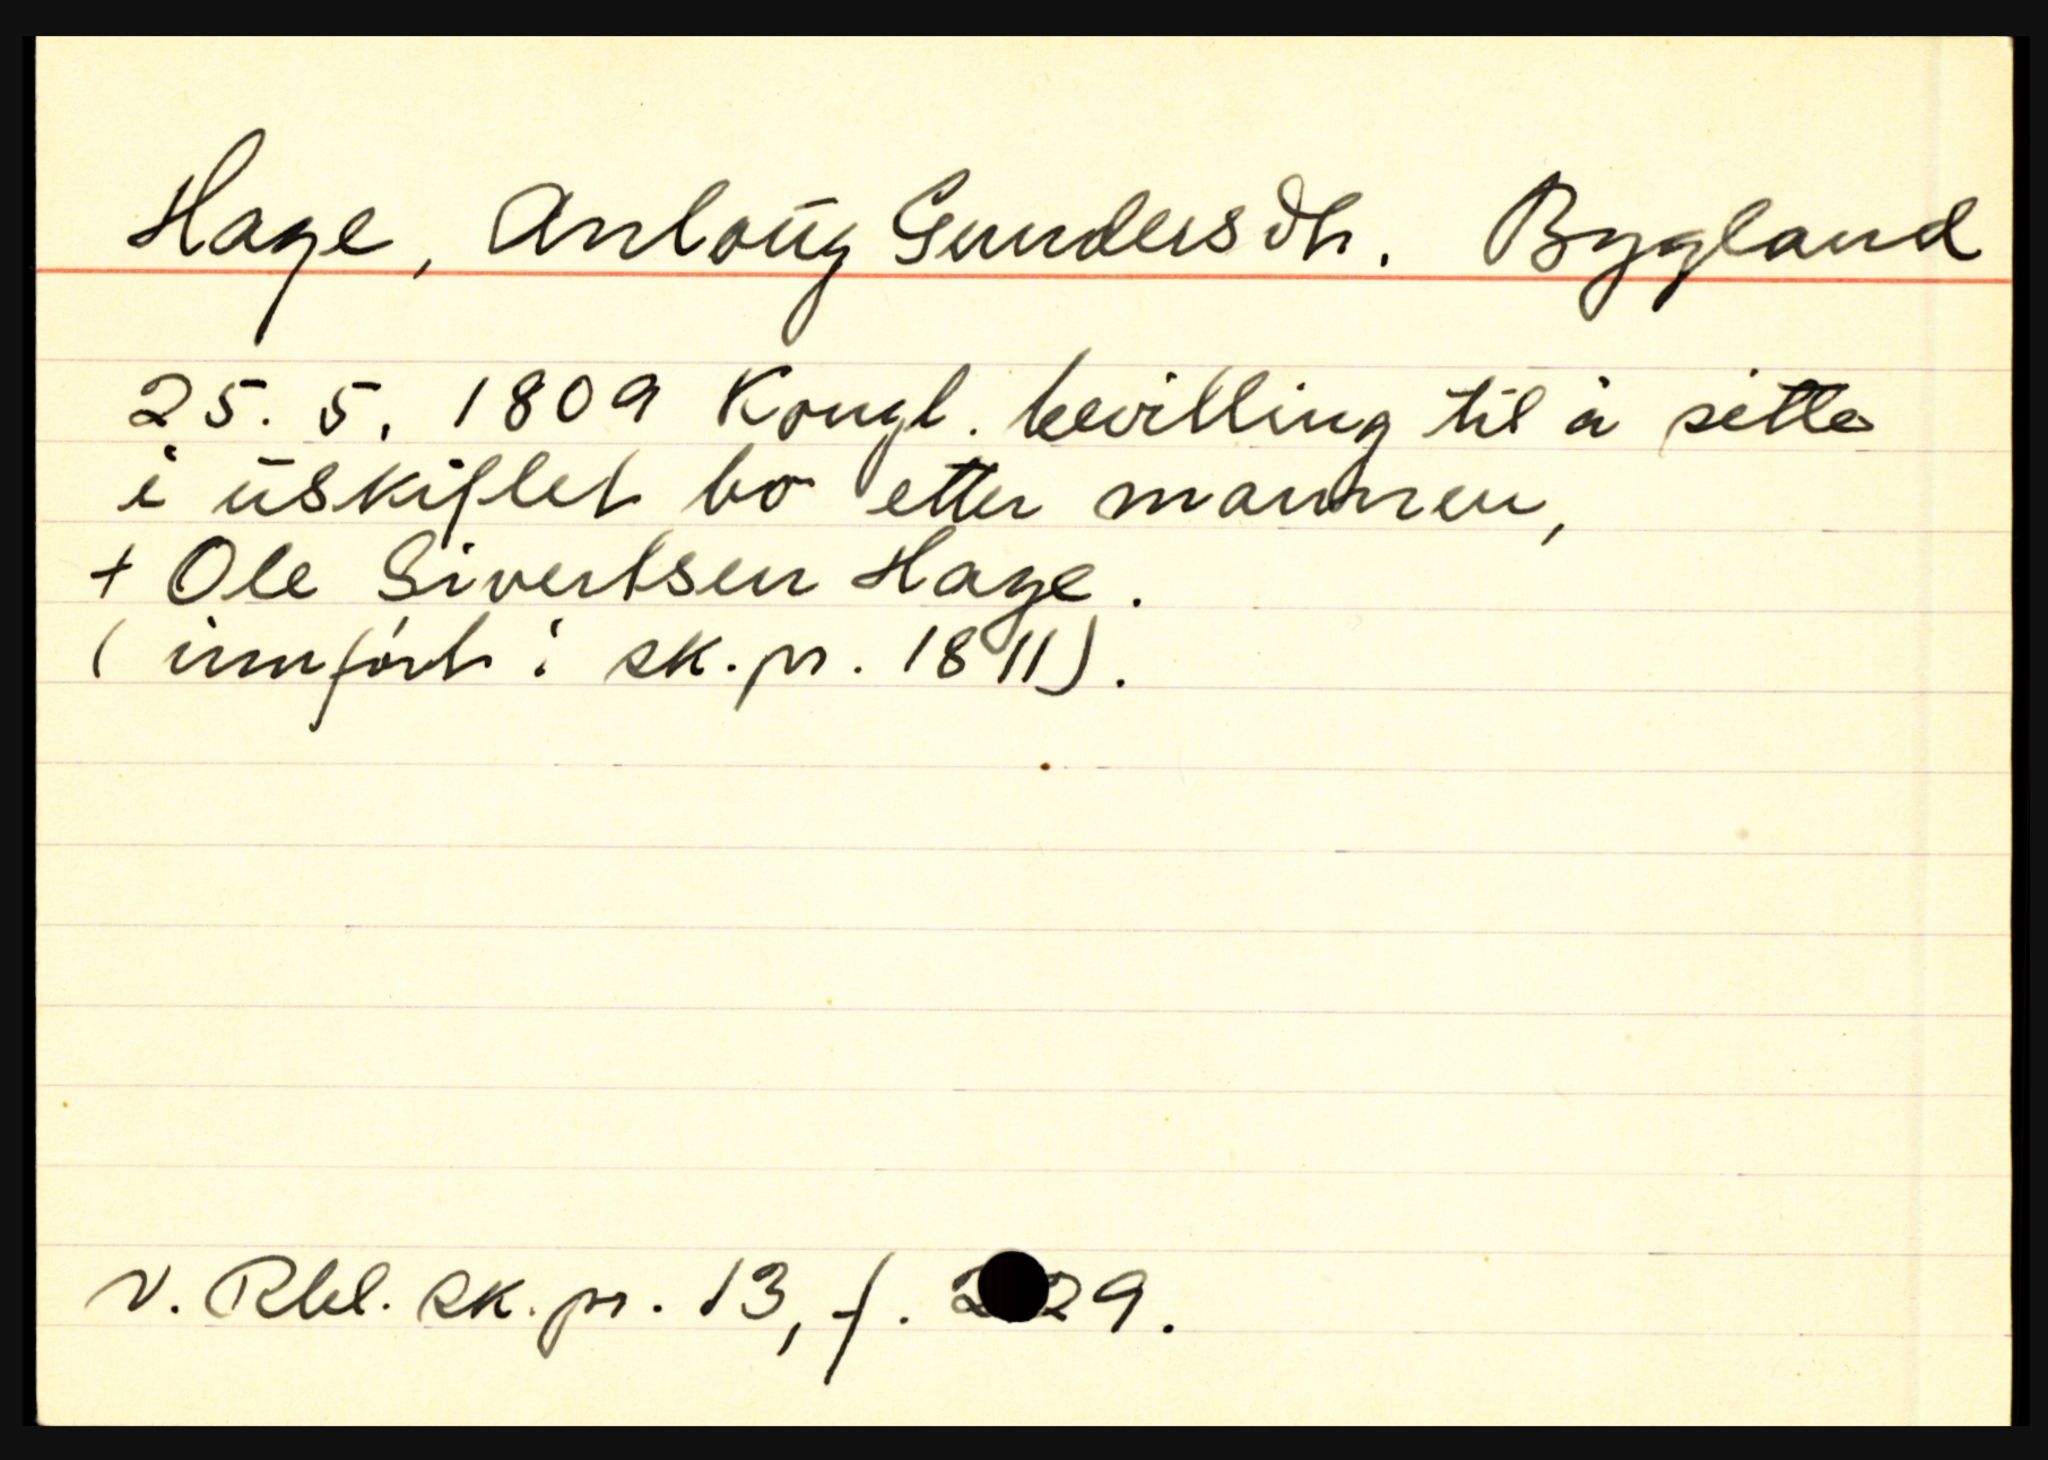 Hage, Anlaug Gundersdtr. Bygland
25. 5. 1809 Kongl. bevilling til å sitte
i uskiftet bo etter mannen,
+ Ole Sivertsen Hage.
(innført i sk.pr. 1811).
v. Rbl. sk.pr. 13, f. 229.